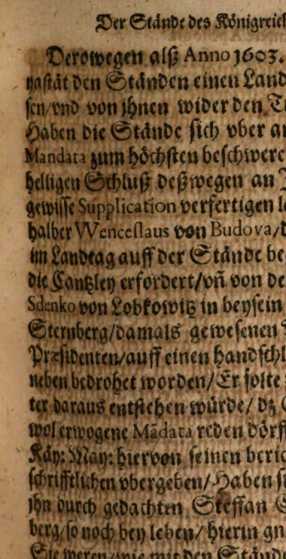 Der Stände des Königreich
Derowegen alß Anno 1603.
nastät den Ständen einen Land
sen/vnd von ihnen wider den T
Haben die Stände sich vber a
Mandata zum höchsten beschwere
helligen Schluß deßwegen an
gewisse Supplication verfertigen l
halber Wenceslaus von Budova/
im Landtag auff der Stände be
die Cantzley erfordert/vn̄ von de
Sdenko von Lobkowitz in beysein
Sternberg/damals gewesenen
Præsidenten/auff einen handschl
neben bedrohet worden/Er solte
ter daraus entstehen würde/dz
wol erwogene Mādata reden dörff
Käy: May: hiervon seinen beric
schrifftlichen vbergeben/Haben si
ihn durch gedachten Steffan S
berg/so noch bey leben/hierin gn
Sie weren/wie mit den Stände